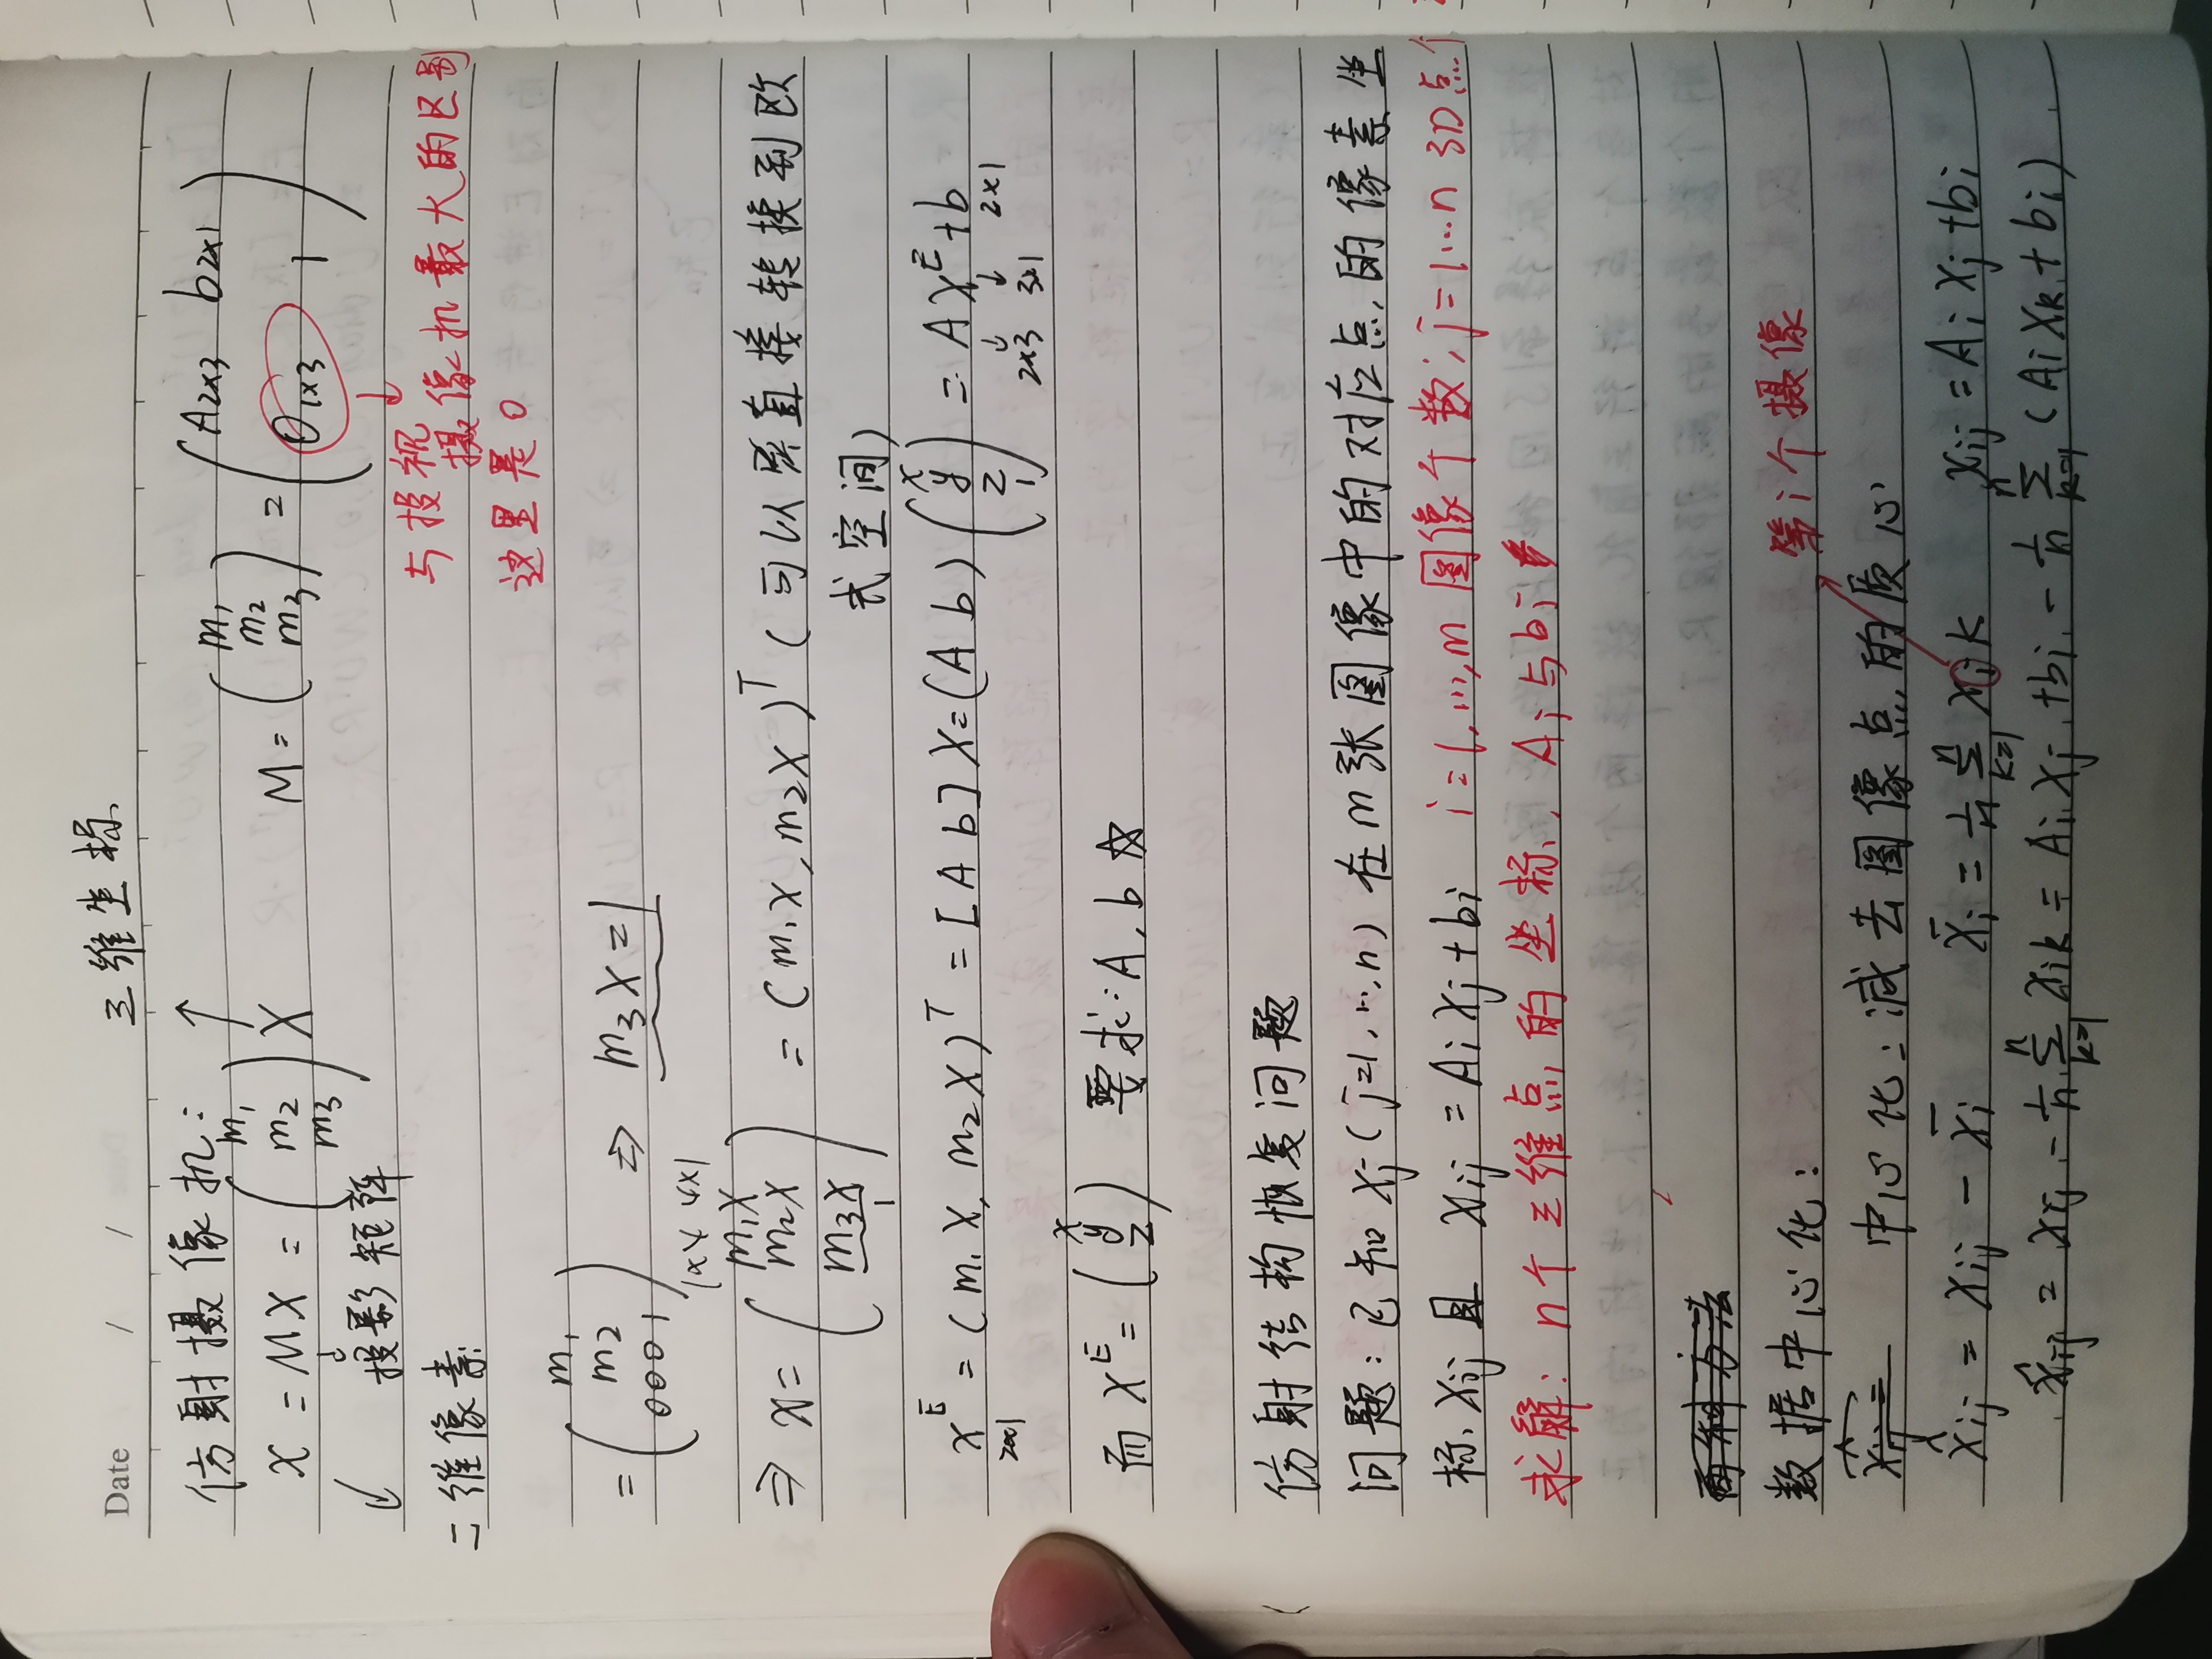 Date / /
三维坐标
仿射摄像机:
x = MX = (m1 m2 m3) X M = (m1 m2 m3) = (A2x3 b2x1 01x3 1)
投影矩阵
二维像素
与投视摄像机最大的区别
这里是0
= (m1 m2 0001) 1x4 4x1 ⇒ m3X=1
⇒ x = (m1X m2X m3X) = (m1X, m2X)^T (可以原直接转换到欧
1 式空间)
x^E = (m1X, m2X)^T = [A b] X = (A b) (x y z 1) = AX^E + b
2x1 2x3 3x1 2x1
而 X^E = (x y z) 要求: A, b ☆
仿射结构恢复问题
问题: 已知 Xj (j=1,…,n) 在m张图像中的对应点的像素坐
标 xij 且 xij = AiXj + bi i=1,…,m 图像个数; j=1…n 3D点个
求解: n个三维点的坐标, Ai与bi
数据中心化:
中心化: 减去图像点的质心 第i个摄像
x̂ij = xij − x̄i x̄i = 1/n Σ(k=1..n) xik xij = AiXj + bi
x̂ij = xij − 1/n Σ(k=1..n) xik = AiXj + bi − 1/n Σ(k=1..n) (AiXk + bi)